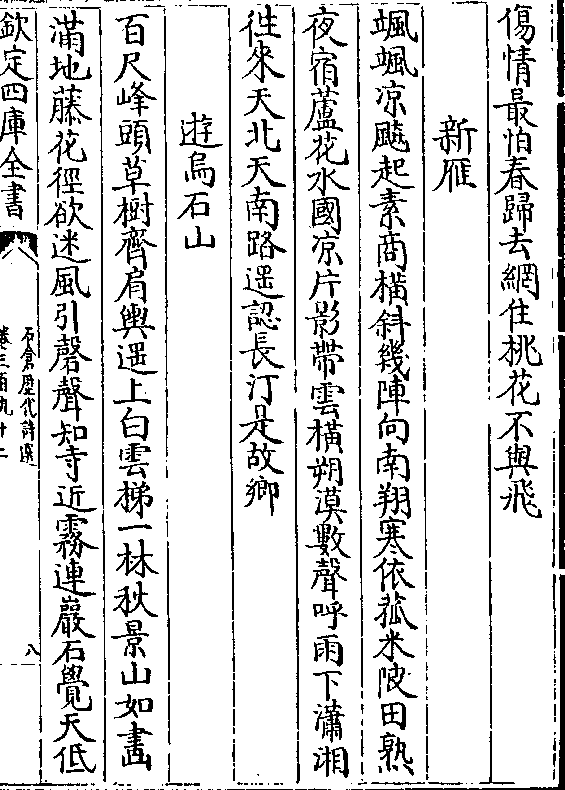 傷情最怕春歸去網住桃花不與飛
新雁
颯颯凉飈起素商橫斜幾陣向南翔寒依菰米陂田熟
夜宿蘆花水國凉片影帶雲橫朔漠數聲呼雨下瀟湘
徃來天北天南路遥認長汀是故鄉
遊烏石山
百尺峰頭草樹齊肩輿遥上白雲梯一林秋景山如畵
滿地藤花徑欲迷風引磬聲知寺近霧連巖石覺天低
欽定四庫全書
石倉歷代詩選
卷三百九十二
八